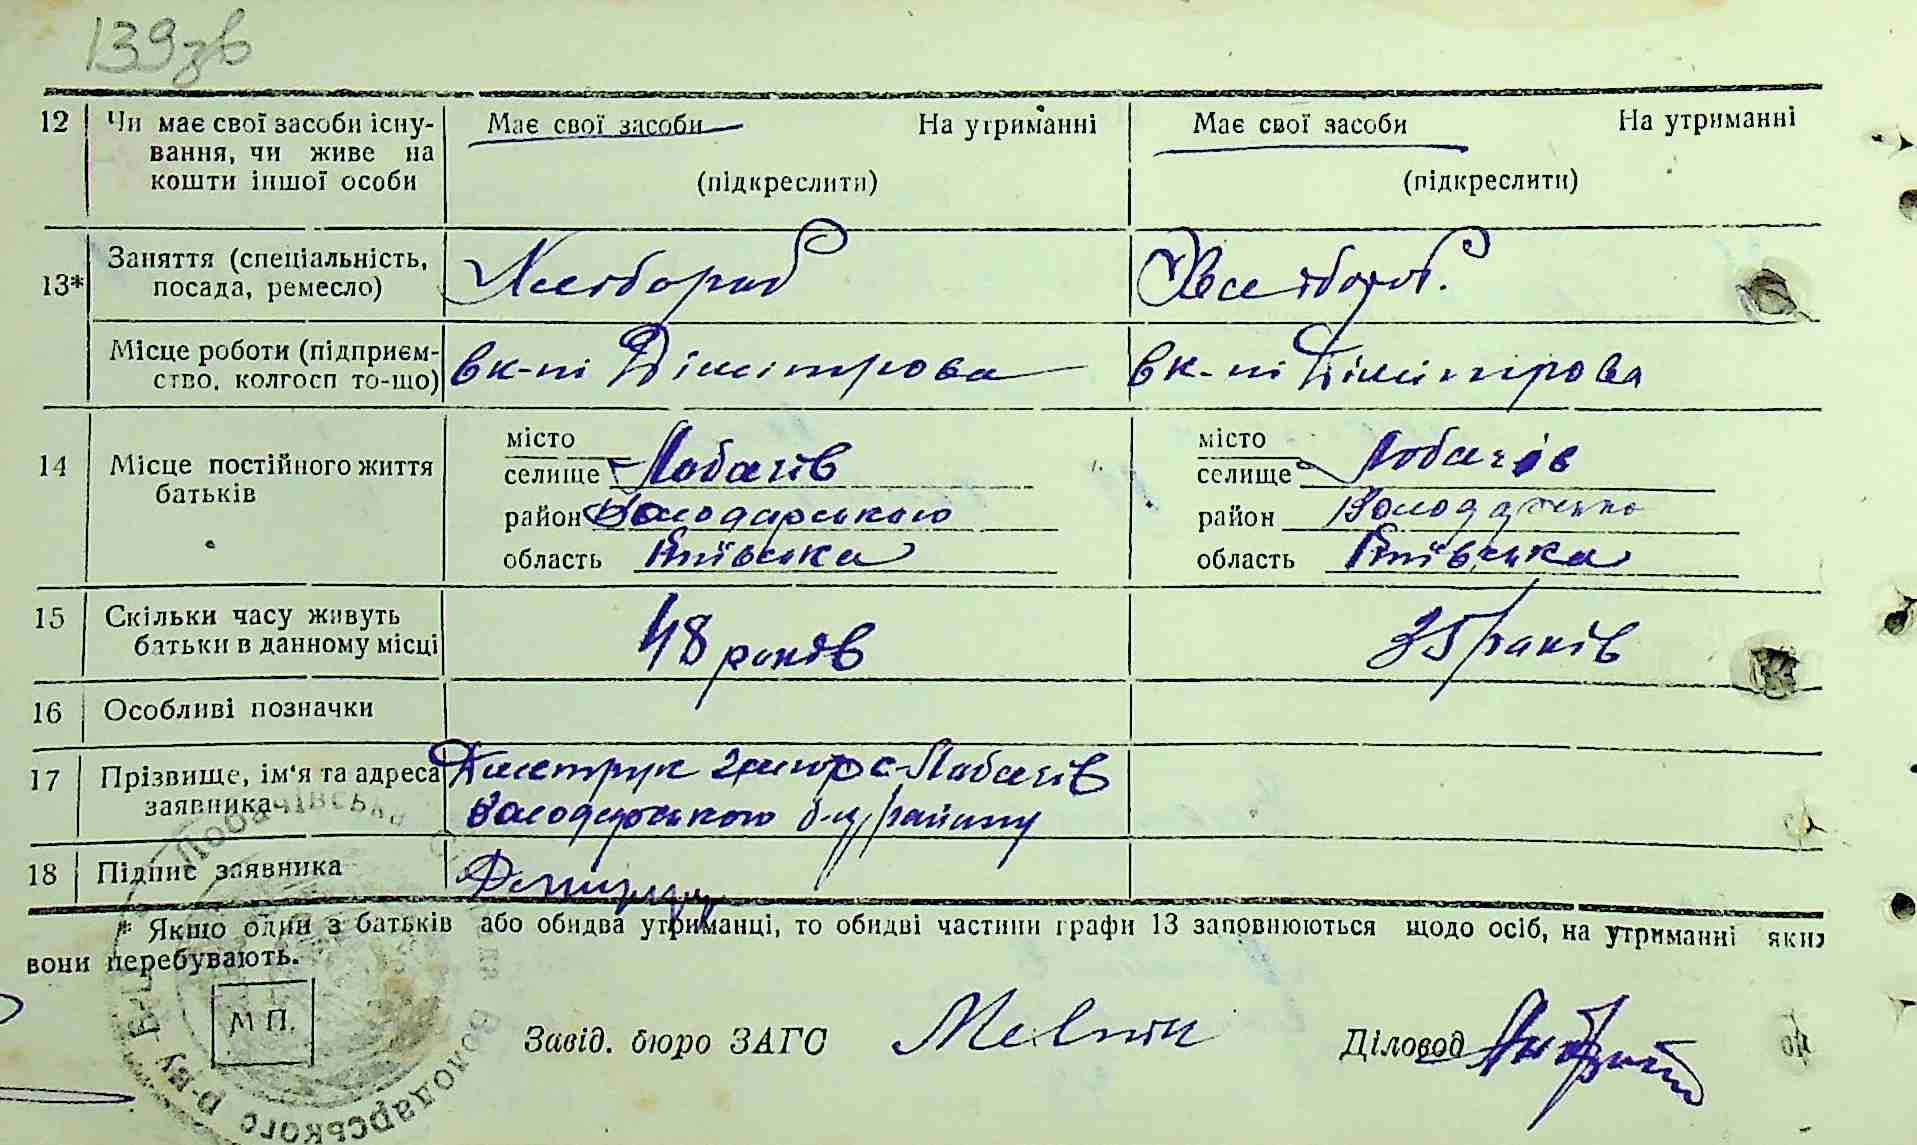 139зв
12 Чи має свої засоби існу- Має свої засоби На утриманні Має свої засоби На утриманні
вання, чи живе на
кошти іншої особи (підкреслити) (підкреслити)
13* Заняття (спеціальність, Хлібороб Хлібороб.
посада, ремесло)
Місце роботи (підприєм- в к-пі Дімітрова в к-пі Дімітрова
ство, колгосп то-що)
14 Місце постійного життя місто місто
батьків селище Лобачів селище Лобачів
район Володарського район
область Київська область Київська
15 Скільки часу живуть 48 років 35 років
батьки в данному місці
16 Особливі позначки
17 Прізвище, ім'я та адреса с-Лобачів
заявника Володарського району
18 Підпис заявника
* Якщо один з батьків або обидва утриманці, то обидві частини графи 13 заповнюються щодо осіб, на утриманні яких
вони перебувають.
М П. Завід. бюро ЗАГС Мельник Діловод
Лобачівська Володарського р-ву